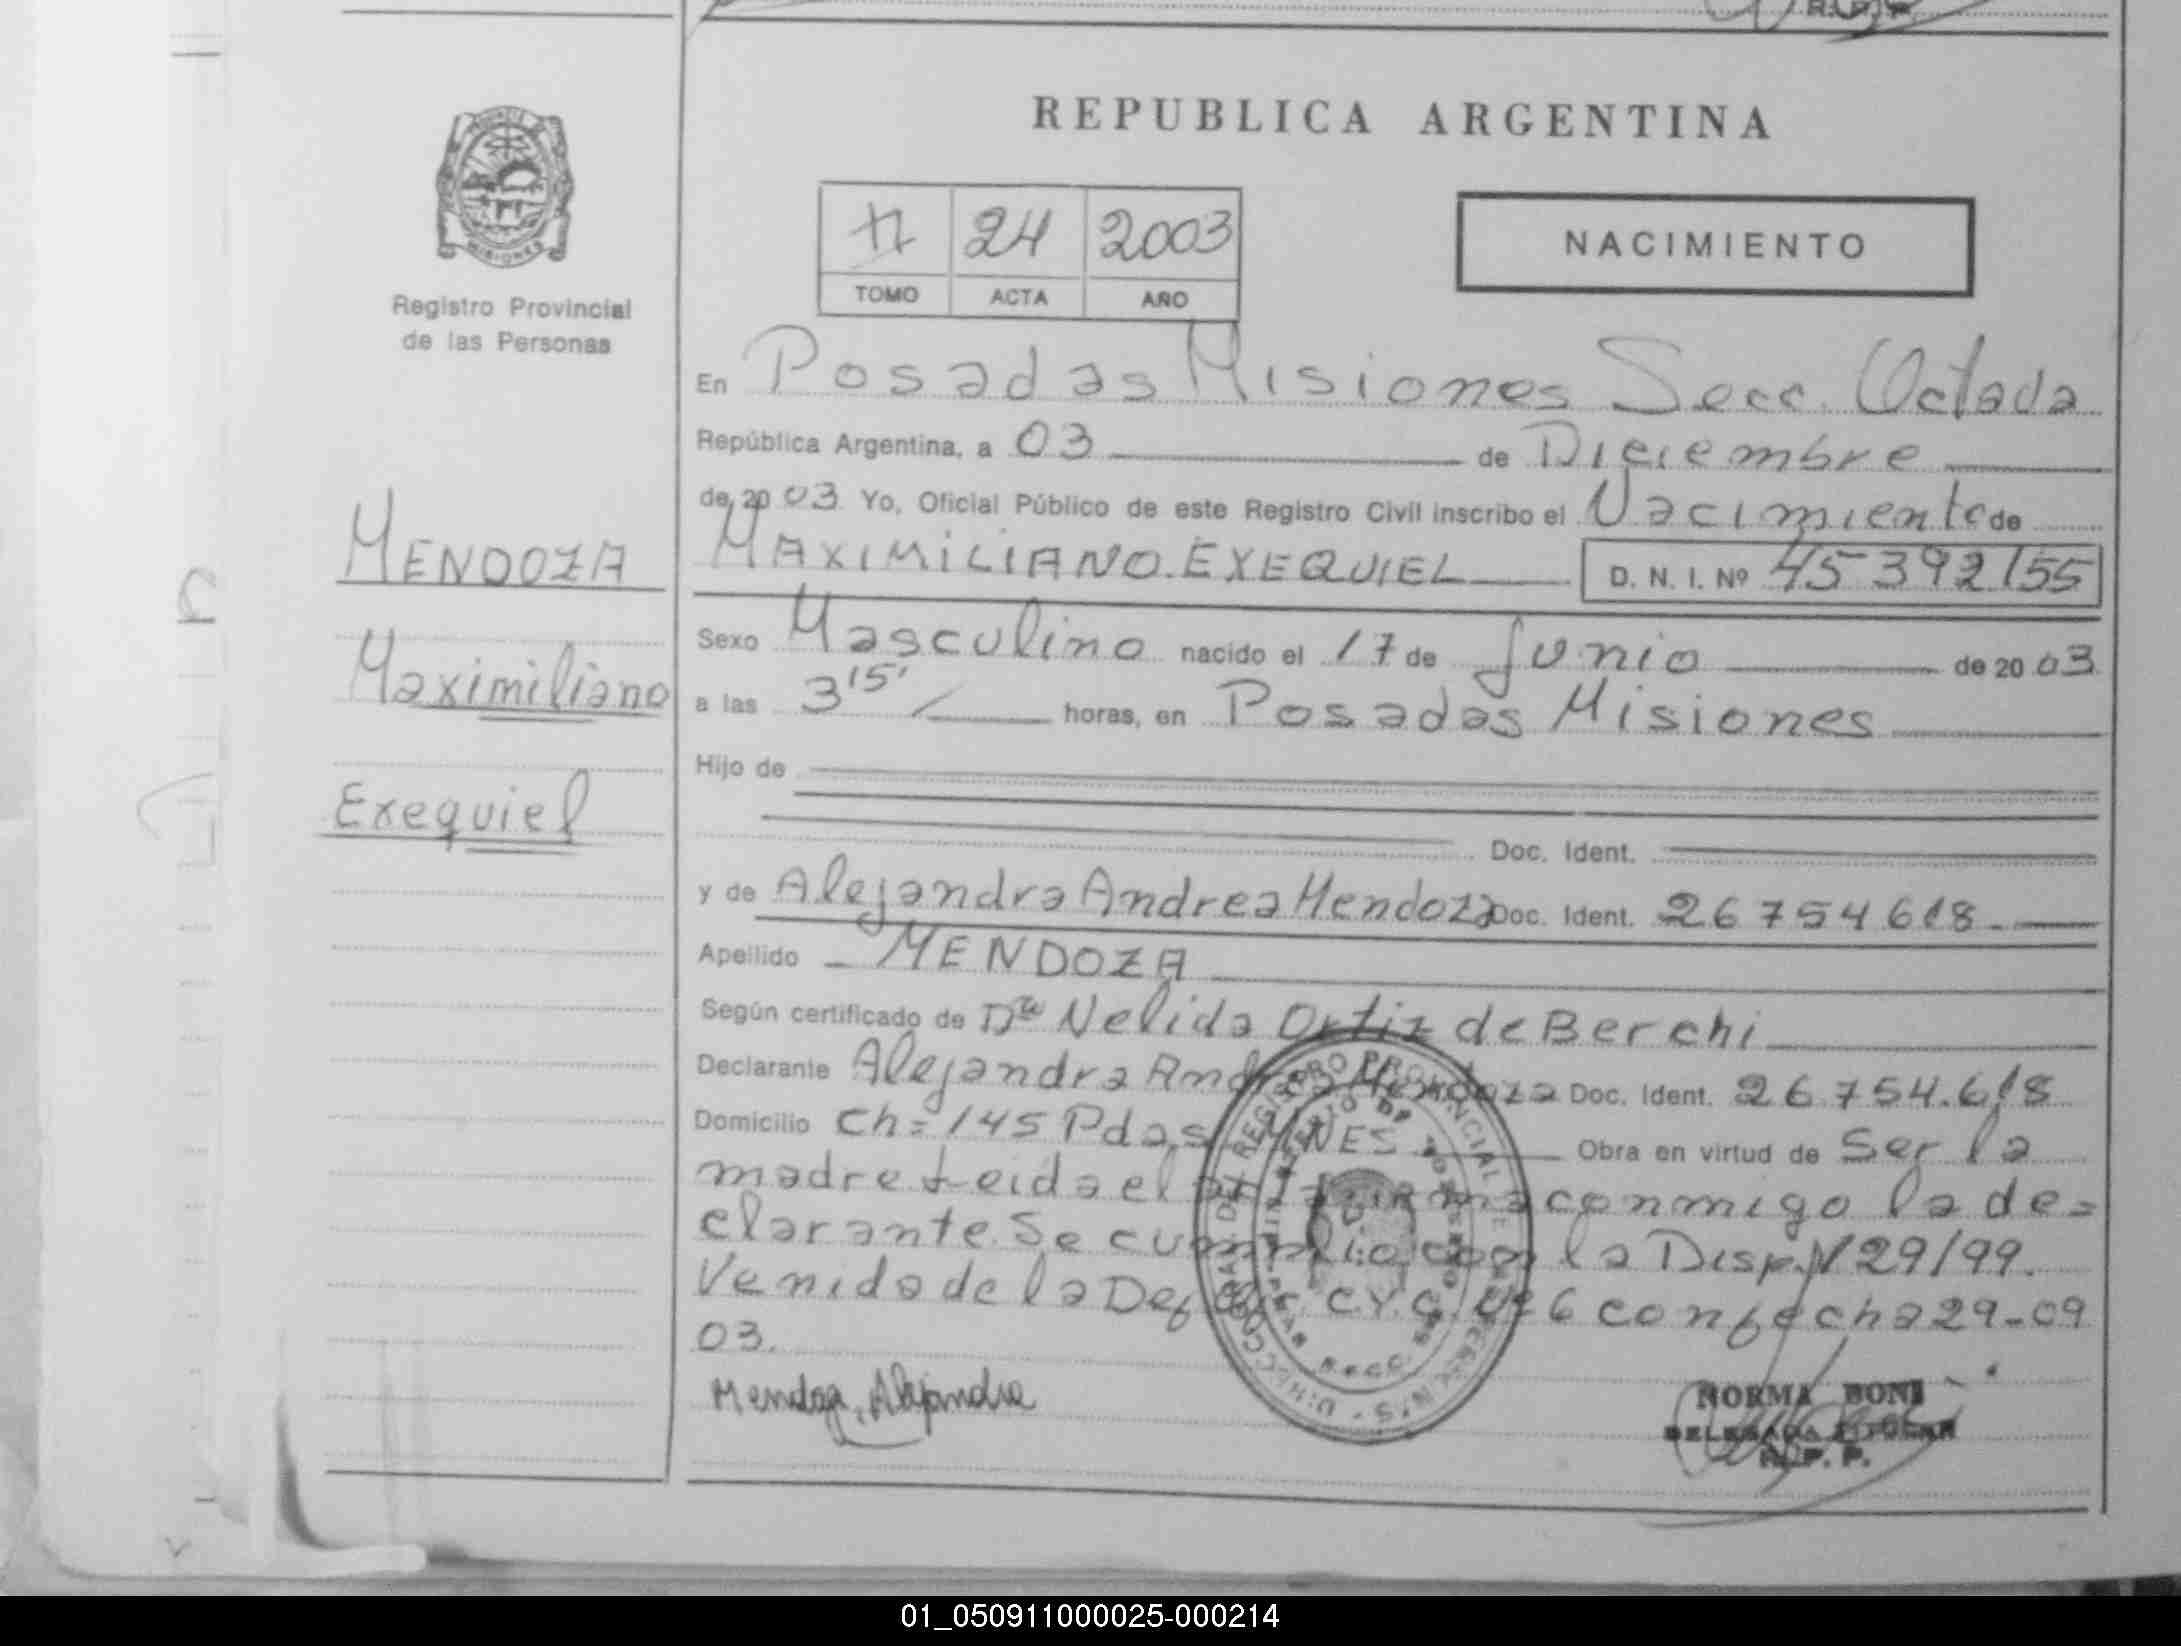 R.P.P.
REPUBLICA ARGENTINA
MISIONES
Registro Provincial
de las Personas
II 24 2003
TOMO ACTA AÑO
NACIMIENTO
En Posadas Misiones Secc. Octada
República Argentina, a 03 de Diciembre
de 20 03 Yo, Oficial Público de este Registro Civil inscribo el Nacimiento de
MENDOZA
MAXIMILIANO EXEQUIEL D. N. I. Nº 45392155
Maximiliano
Sexo Masculino nacido el 17 de Junio de 20 03
a las 3 15' horas, en Posadas Misiones
Exequiel
Hijo de
Doc. Ident.
y de Alejandra Andrea Mendoza Doc. Ident. 26754618
Apellido MENDOZA
Según certificado de Dra Nelida Ortiz de Berchi
Declarante Alejandra Andrea Mendoza Doc. Ident. 26.754.618
Domicilio Ch=145 Pdas MNES Obra en virtud de Ser la
madre Leida el firma conmigo la de=
clarante. Se cumplio con la Disp. Nº 29/99.
Venida de la Def. C.Y.C. Nº 6 con fecha 29-09
03.
Mendoza, Alejandra
NORMA BONI
DELEGADA TITULAR
R.P.P.
01_050911000025-000214